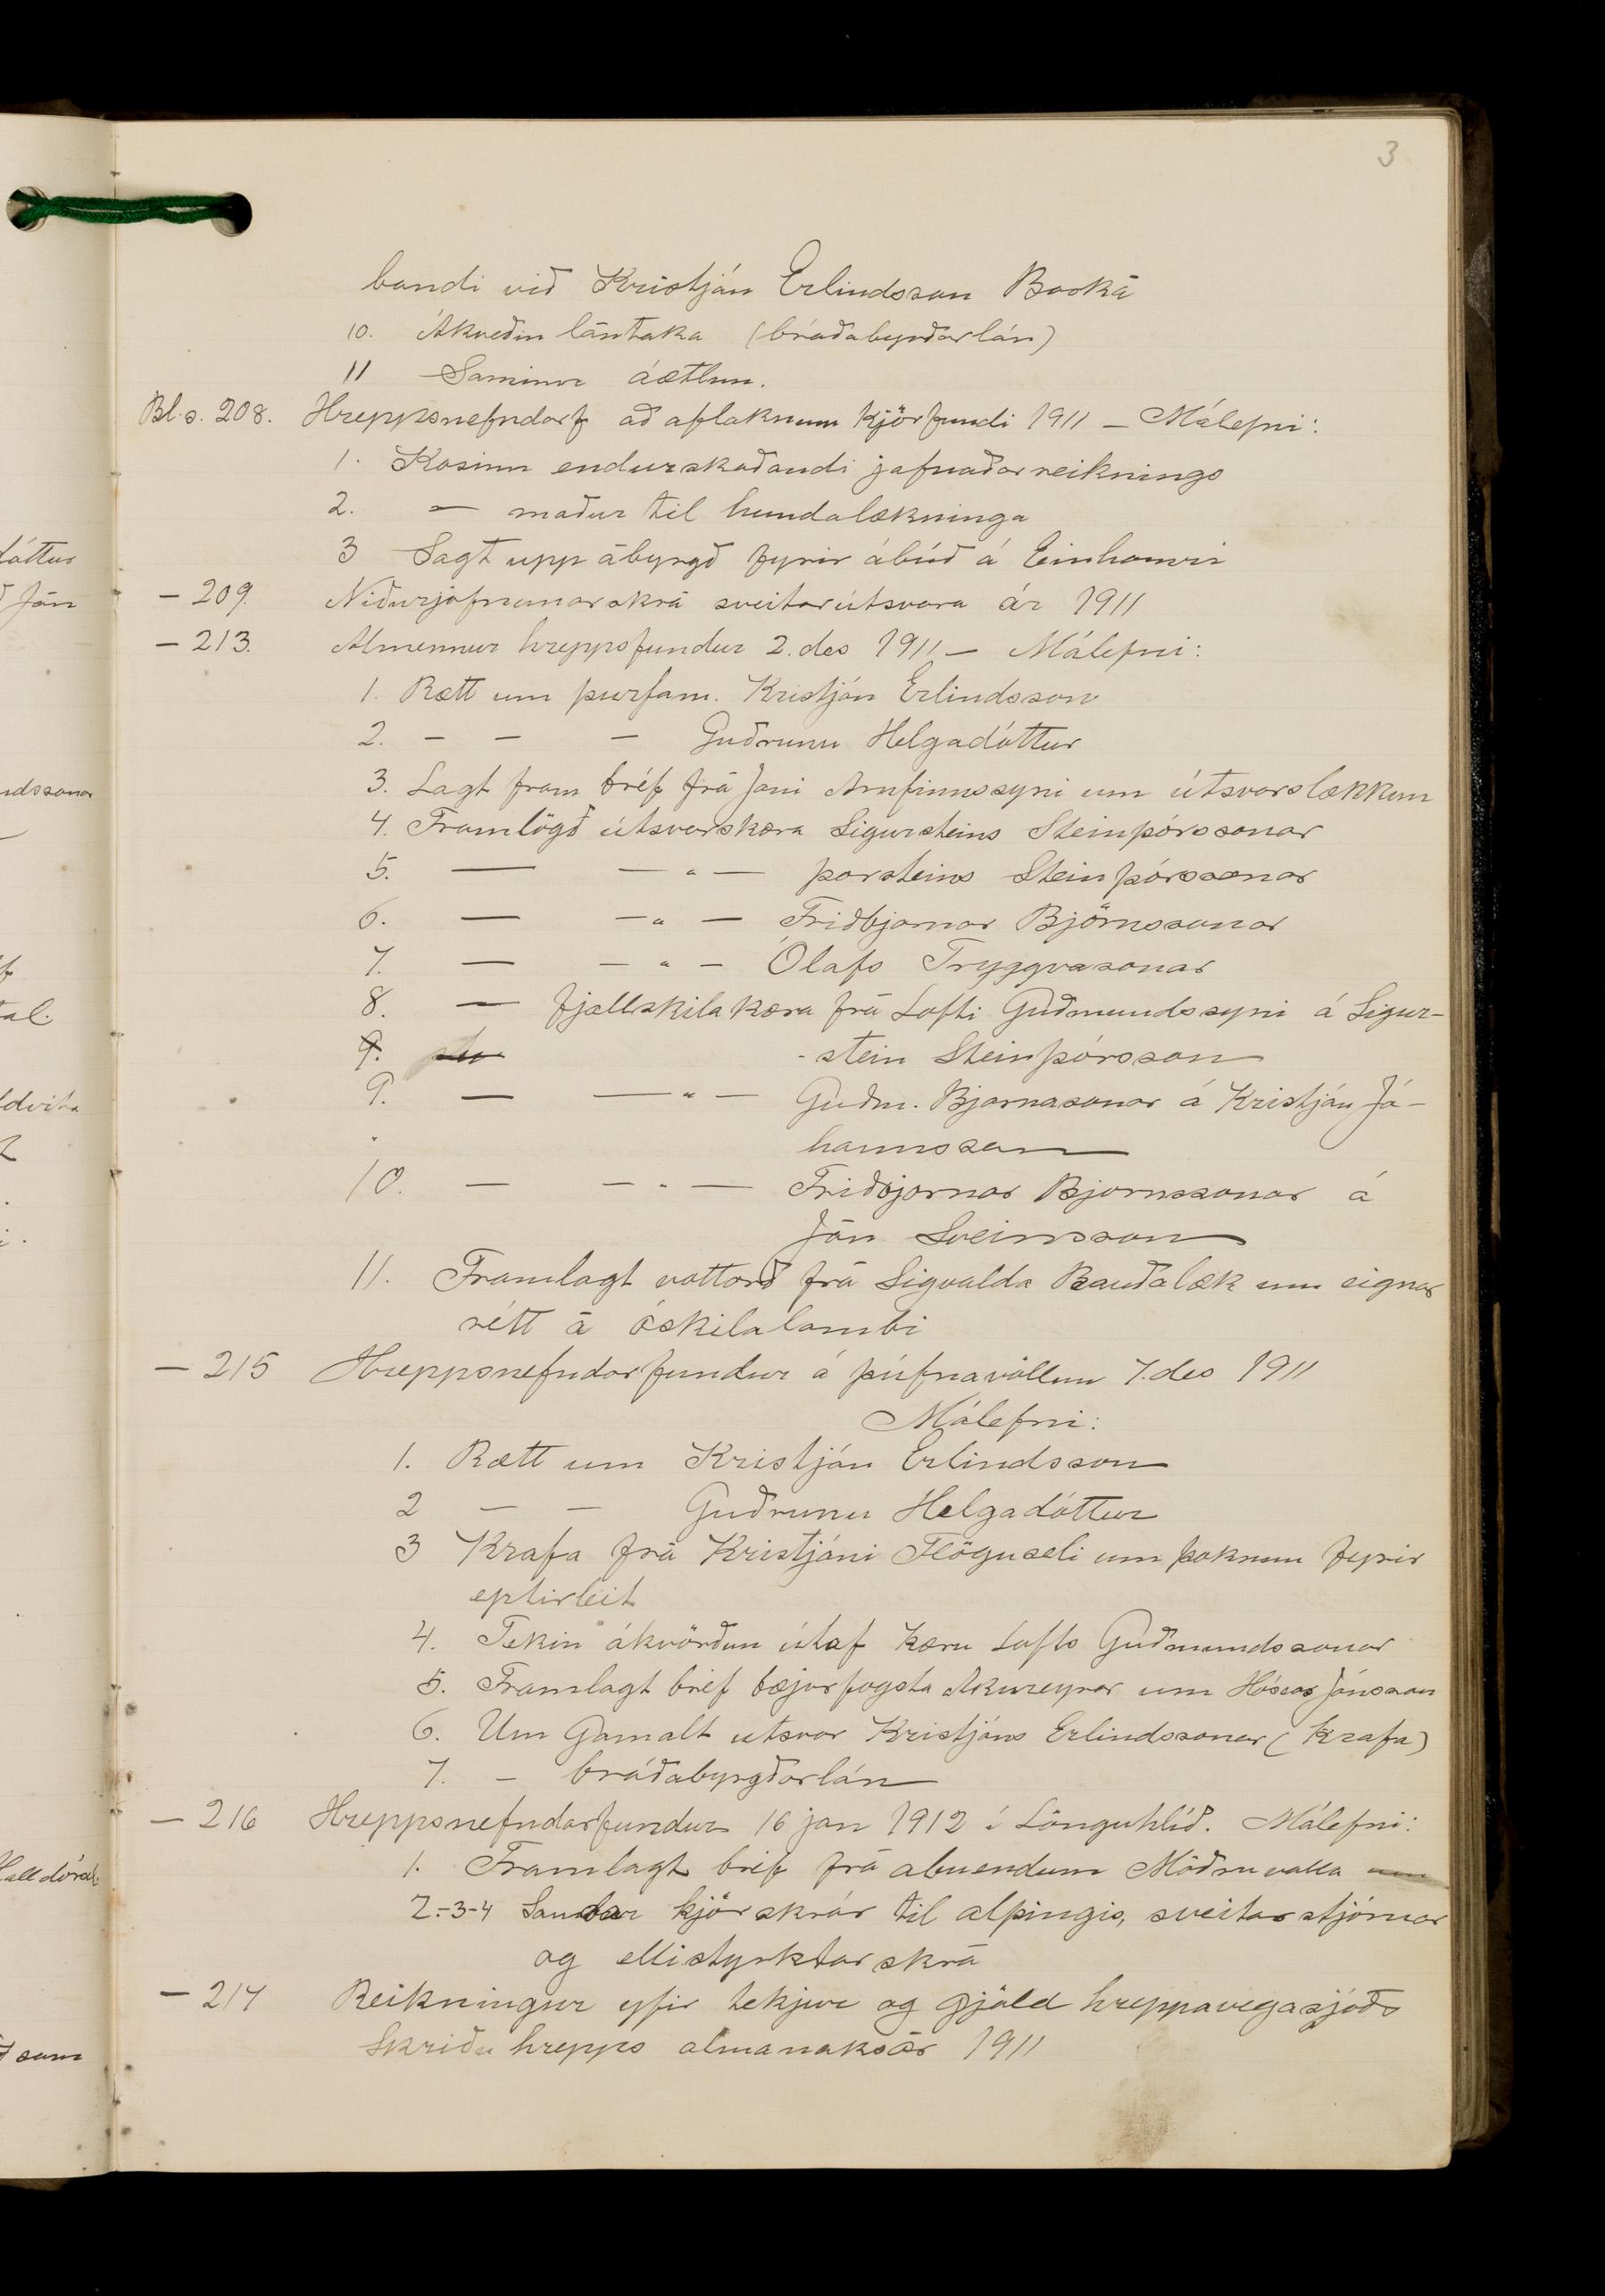 3
bandi við Kristján Erlindsson Baská
10. Ákveðin lántaka (bráðabyrðarlán)
11 Saminn áætlun.
Bl.s. 208. Hreppsnefndarf að aflaknum kjörfundi 1911 – Málefni:
1. Kosinn endurskoðandi jafnaðarreiknings
2. – maður til hundalækninga
3 Sagt upp ábyrgð fyrir ábúð á Einhamri
– 209. Niðurjöfnunarskrá sveitarútsvara ár 1911
– 213. Almennur hreppsfundur 2. des 1911 – Málefni:
1. Rætt um þurfam. Kristján Erlindsson
2. – – – Guðrunu Helgadóttur
3. Lagt fram bréf frá Jóni Arnfinnssyni um útsvarslækkun
4. Framlögð útsvarskæra Sigursteins Steinþórssonar
5. — – " – Þorsteins Steinþórssonar
6. — – " – Friðbjarnar Björnssonar
7. — – " – Ólafs Tryggvasonar
8. — fjallskilakæra frá Lofti Guðmundssyni á Sigur-
9. -stein Steinþórsson
9. — — " – Guðm. Bjarnasonar á Kristján Jó-
hannsson
10. — – " — Friðbjarnar Bjornssonar á
Jón Sveinsson
11. Framlagt vottorð frá Sigvalda Rauðalæk um eignar
rétt á óskilalambi
– 215 Hreppsnefndarfundur á Þúfnavöllum 7. des 1911
Málefni:
1. Rætt um Kristján Erlindsson
2 – – Guðrunu Helgadóttur
3 Krafa frá Kristjáni Flöguseli um þoknun fyrir
eptirleit
4. Tekin ákvörðun útaf kæru Lofts Guðmundssonar
5. Framlagt bréf bæjarfogeta Akureyrar um Jónsson
6. Um Gamalt utsvar Kristjáns Erlindssonar (krafa)
7. – bráðabyrgðarlán
– 216 Hreppsnefndarfundur 16 jan 1912 í Lönguhlíð. Málefni:
1. Framlagt bréf frá abuendum Möðruvalla um
2-3-4 Samdar kjörskrár til alþingis, sveitarstjórnar
og ellistyrktarskrá
– 217 Reikningur yfir tekjur og gjöld hreppavegasjóðs
Skriðuhrepps almanaksár 1911